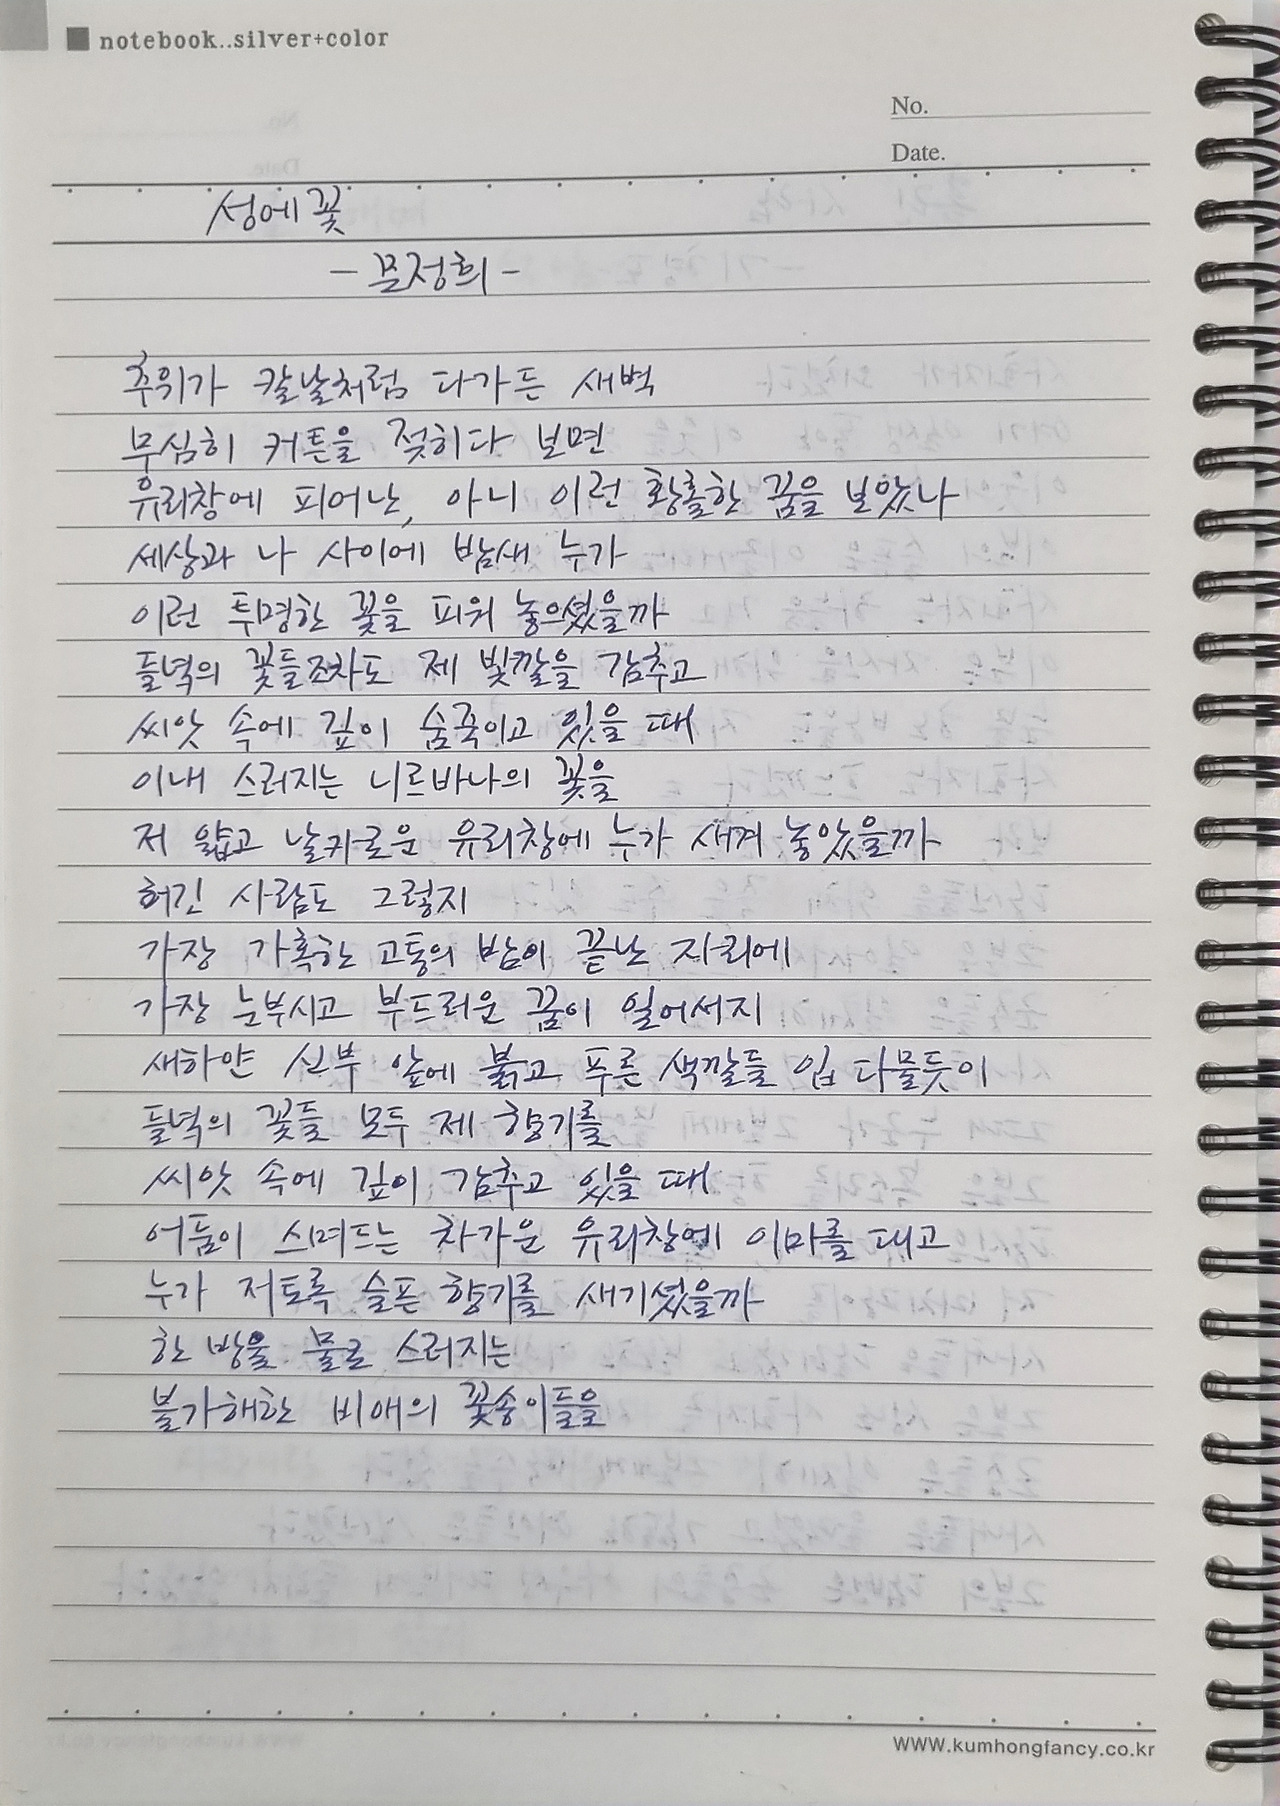 notebook..silver+color
No.
Date.
성에꽃
- 문정희 -
추위가 칼날처럼 다가든 새벽
무심히 커튼을 젖히다 보면
유리창에 피어난, 아니 이런 황홀한 꿈을 보았나
세상과 나 사이에 밤새 누가
이런 투명한 꽃을 피워 놓으셨을까
들녘의 꽃들조차도 제 빛깔을 감추고
씨앗 속에 깊이 숨죽이고 있을 때
이내 스러지는 니르바나의 꽃을
저 얇고 날카로운 유리창에 누가 새겨 놓았을까
허긴 사람도 그렇지
가장 가혹한 고통의 밤이 끝난 자리에
가장 눈부시고 부드러운 꿈이 일어서지
새하얀 신부 앞에 붉고 푸른 색깔들 입 다물듯이
들녘의 꽃들 모두 제 향기를
씨앗 속에 깊이 감추고 있을 때
어둠이 스며드는 차가운 유리창에 이마를 대고
누가 저토록 슬픈 향기를 새기셨을까
한 방울 물로 스러지는
불가해한 비애의 꽃송이들을
www.kumhongfancy.co.kr